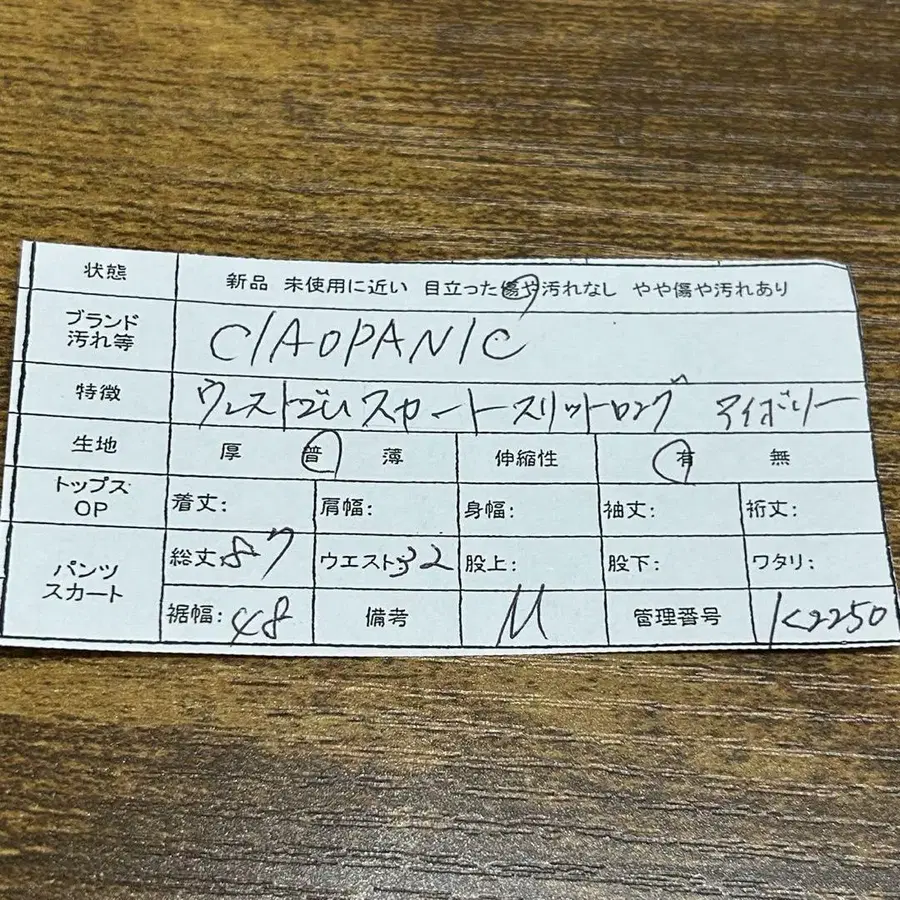 状態 新品 未使用に近い 目立った傷や汚れなし やや傷や汚れあり
ブランド 汚れ等 CIAOPANIC
特徴 ウエストゴム スカート スリット ロング アイボリー
生地 厚 普 薄 伸縮性 有 無
トップス OP 着丈: 肩幅: 身幅: 袖丈: 裄丈:
パンツ スカート 総丈:87 ウエスト:32 股上: 股下: ワタリ:
裾幅:48 備考 M 管理番号 K2250